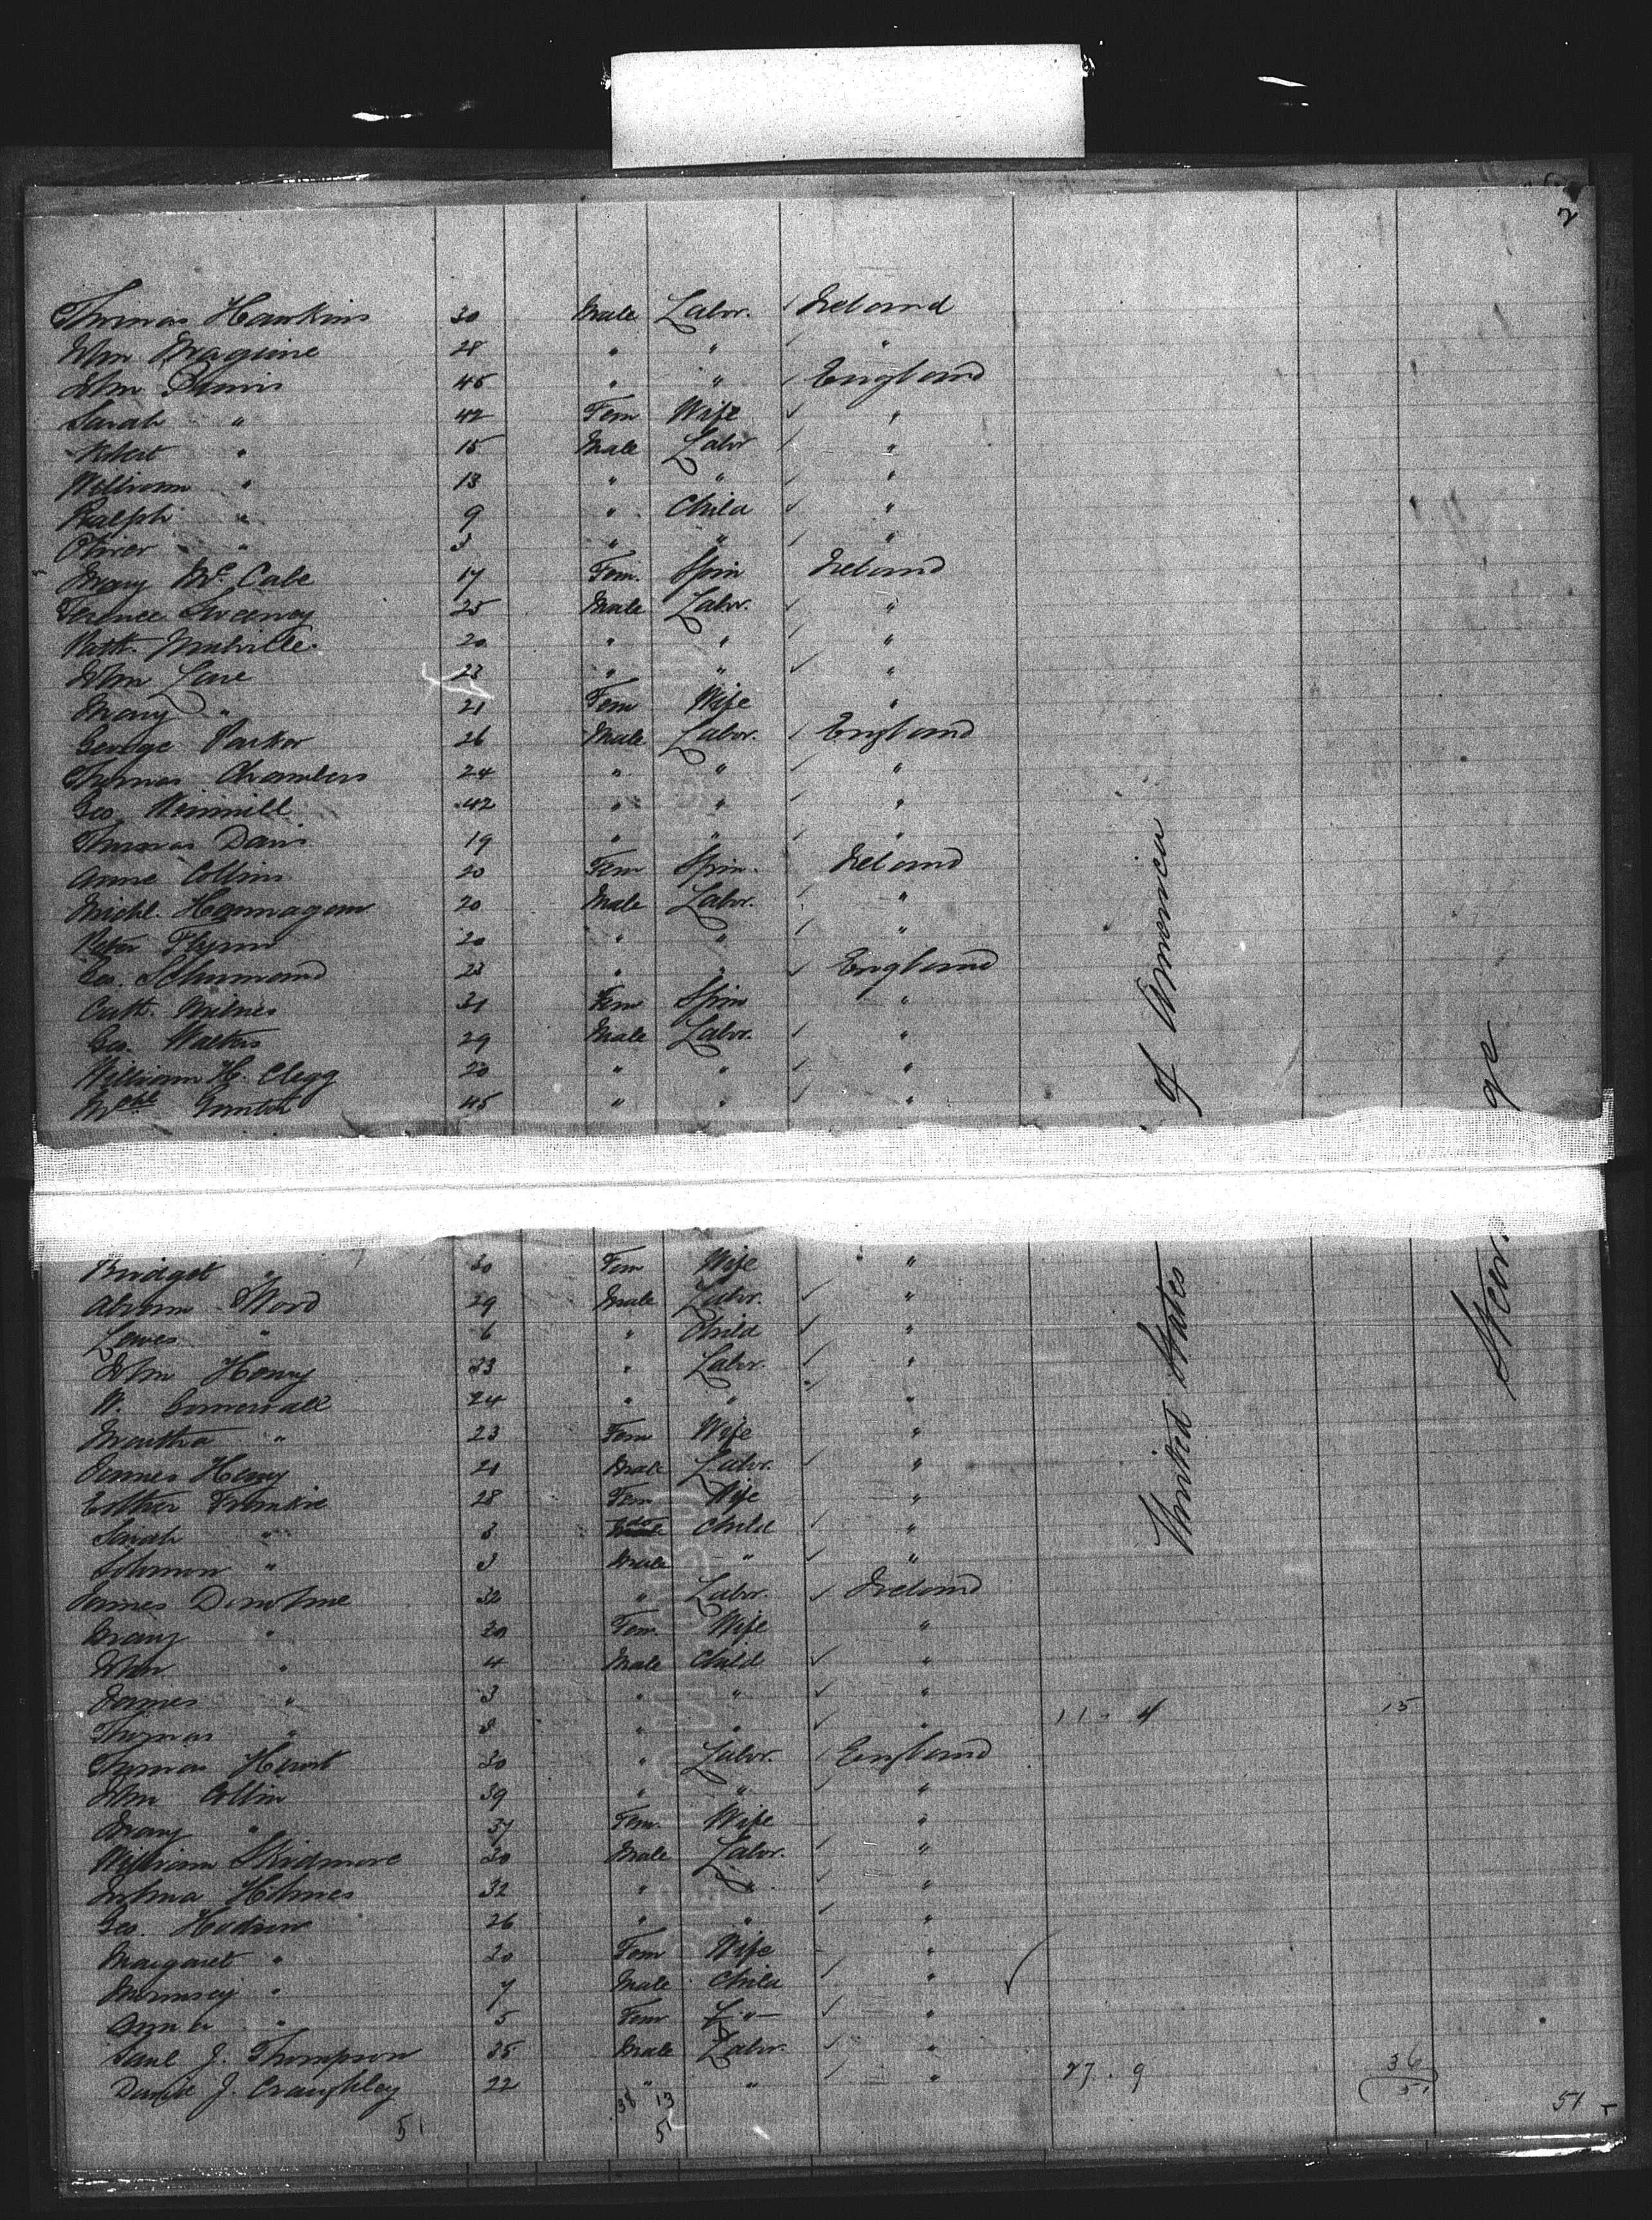 2
Thomas Hawkins 30 Male Labr. ✓ Ireland
John Maguire 28 " " ✓ "
John 45 " " ✓ England
Sarah " 42 Fem Wife ✓ "
Robert " 15 Male Labr ✓ "
William " 13 " " ✓ "
Ralph " 9 " Child ✓ "
Oliver " 3 " " ✓ "
Mary McCabe 17 Fem. Spin Ireland
Terence Sweeney 25 Male Labr. ✓ "
Patk. Mulville 20 " " ✓ "
John 23 " " ✓ "
Mary " 21 Fem Wife "
George Parker 26 Male Labr. ✓ England
Thomas Chambers 24 " " ✓ "
Geo. Winnill 42 " " ✓ "
Thomas Davis 19 " " ✓ "
Anne Collins 20 Fem Spin. Ireland
Michl. Hannagan 20 Male Labr. ✓ "
Peter Flynn 20 " " ✓ "
Geo. 23 " " ✓ England
Cath. Milnes 31 Fem Spin "
Geo. Walters 29 Male Labr. ✓ "
William H. Clegg 20 " " ✓ "
45 " " ✓ "
Bridget " 30 Fem Wife "
Abram Word 29 Male Labr. ✓ "
Lewes " 6 " Child ✓ "
John Henry 33 " Labr. ✓ "
W. 24 " " ✓ "
Martha " 23 Fem Wife "
James Henry 21 Male Labr. ✓ "
Esther Frankie 28 Fem Wife "
Sarah " do Child ✓ "
Solomon " 3 Male " ✓ "
James Donohue 32 " Labr. ✓ Ireland
Mary " 30 Fem. Wife "
John " 4 Male Child ✓ "
James " 3 " " ✓ "
Thomas " " " ✓ " 11 - 4 15
Thomas Hunt 30 " Labr. ✓ England
John Collin 39 " " ✓ "
Mary " 37 Fem. Wife "
William Skidmore 30 Male Labr. ✓ "
Joshua Holmes 32 " " ✓ "
Geo. Hudson 26 " " ✓ "
Margaret " 30 Fem Wife "
" 7 Male Child ✓ "
Ann " 5 Fem " ✓ "
J. Thompson 35 Male Labr. ✓ "
J. 22 " " ✓ " 27 . 9 36
51 38 13 51 51
51
United States of America
Steerage